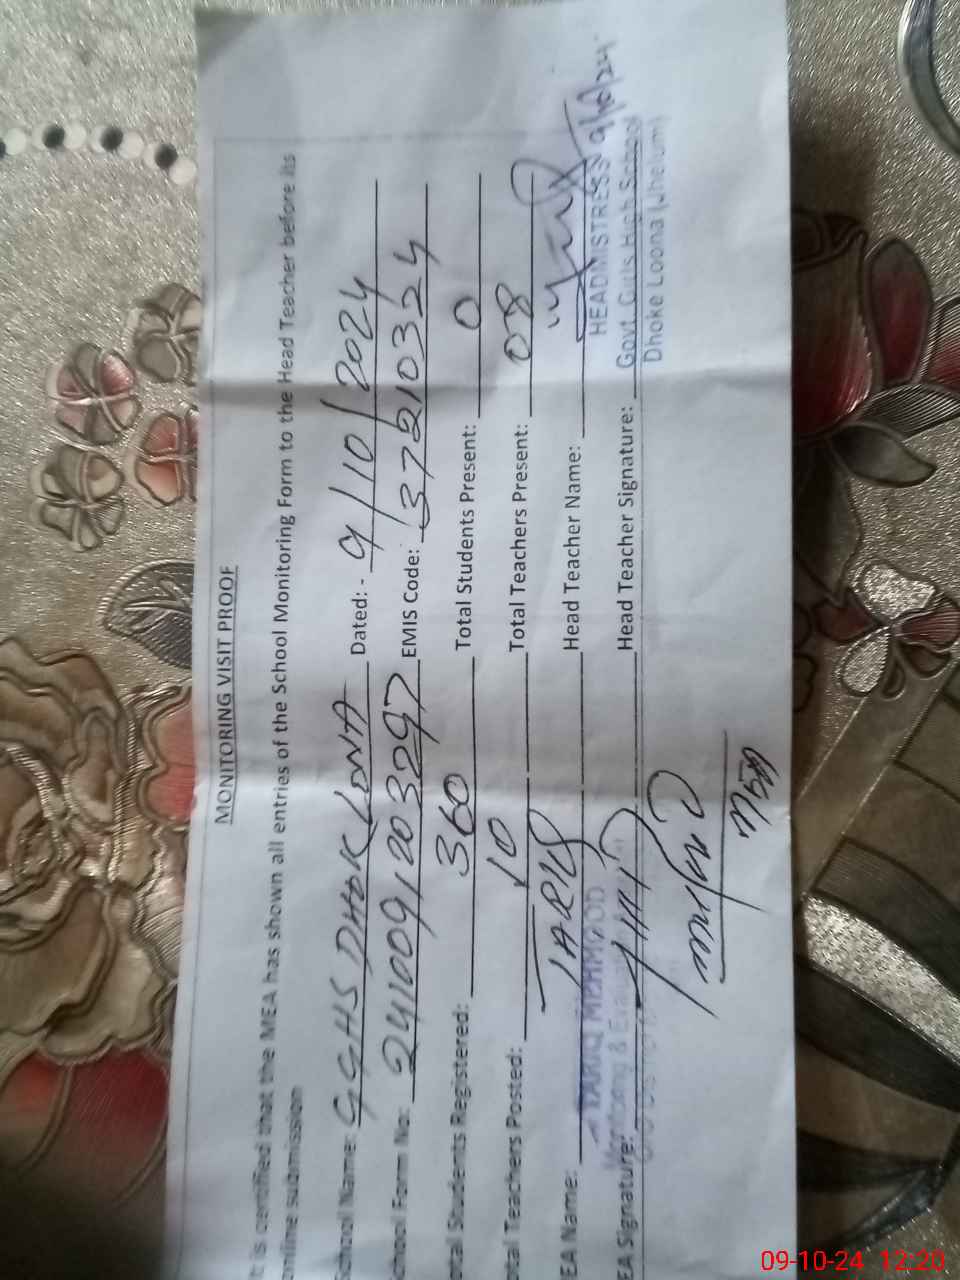 MONITORING VISIT PROOF
t is certified that the MEA has shown all entries of the School Monitoring Form to the Head Teacher before its
online submission
School Name: GGHS DHOK LONA Dated:- 9/10/2024
chool Form No: 241009120203297 EMIS Code: 37210324
otal Students Registered: 360 Total Students Present: 0
otal Teachers Posted: 10 Total Teachers Present: 08
EA Name: TARIQ Head Teacher Name:
TARIQ MEHMOOD
Monitoring &
HEADMISTRESS 9/10/24
EA Signature: Head Teacher Signature:
Govt. Girls High School
Dhoke Loona (Jhelum)
09-10-24 12:20